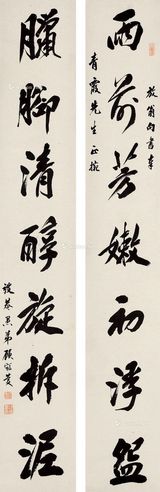 雨前芳嫩初浮盌
放翁句書奉
青霞先生正腕
臘腳清醇旋拆泥
弟顧